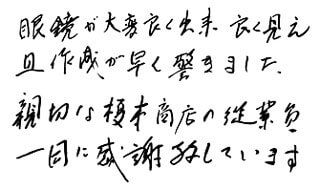 眼鏡が大変良く出来、良く見え
且作成が早く驚きました、
親切な榎木商店の従業員
一同に感謝致しています